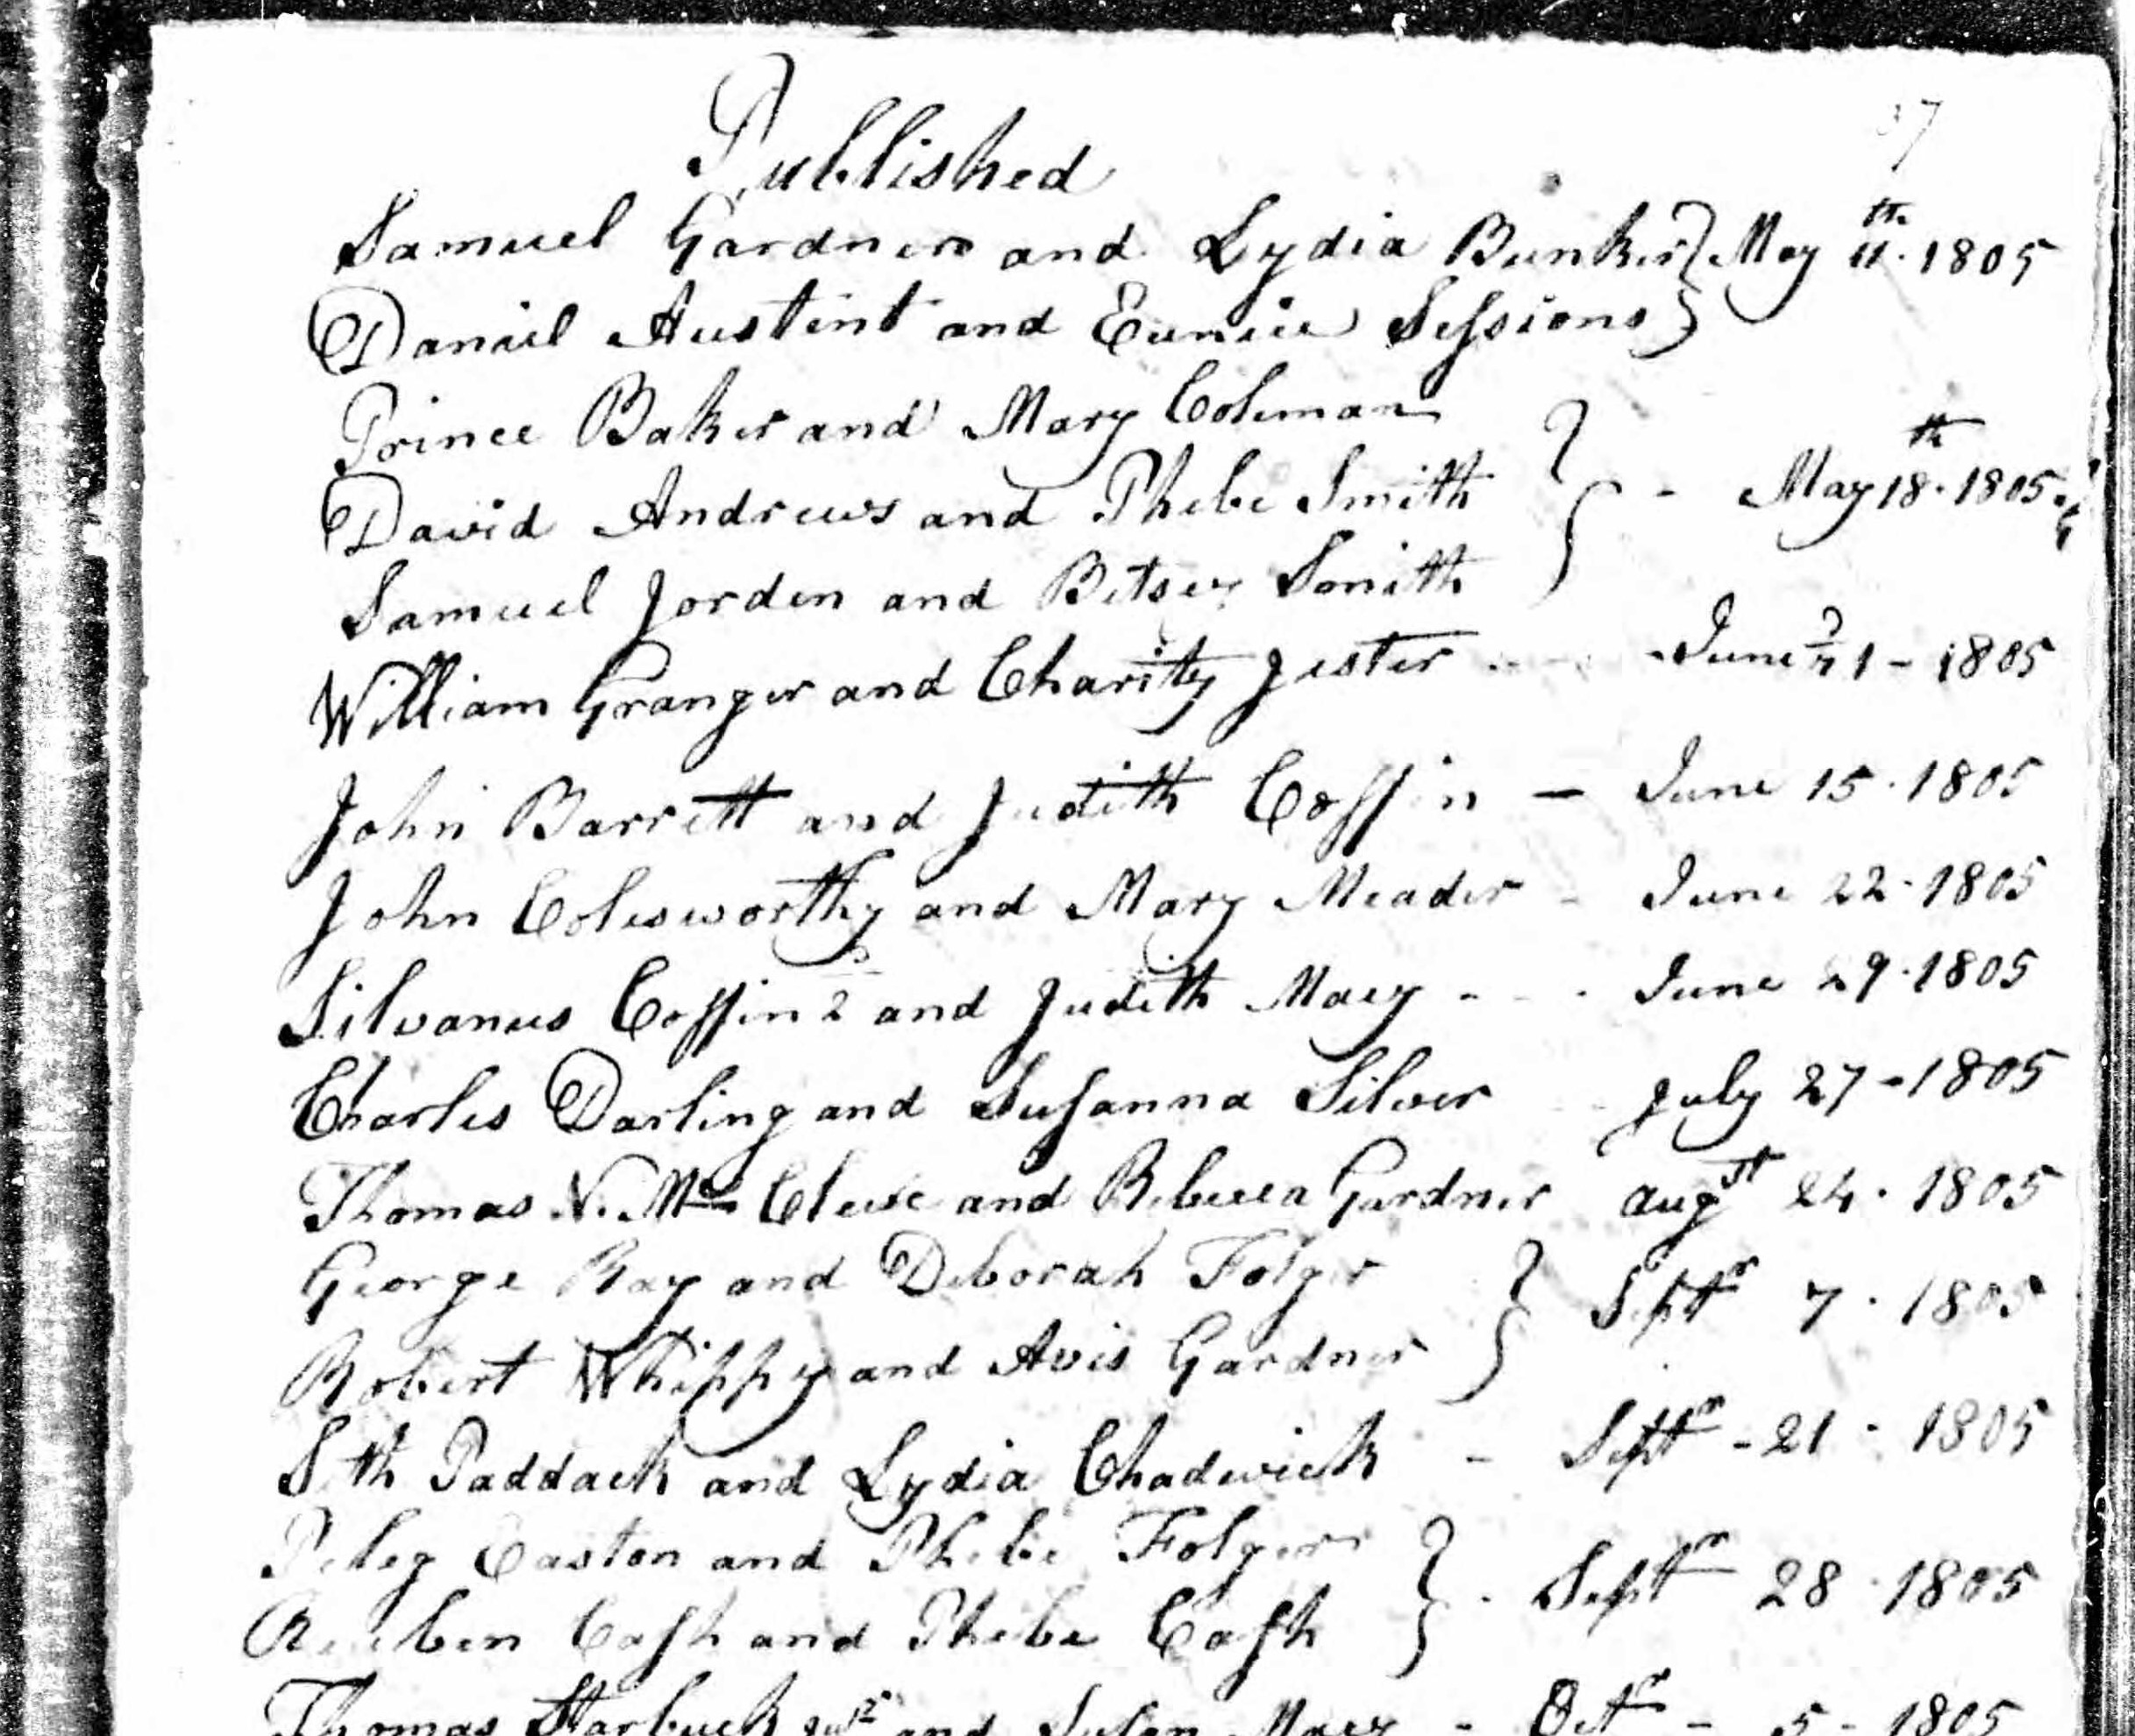 37
Published
Samuel Gardner and Lydia Bunker } May 11th. 1805
Daniel Austint and Eunice Sessions }
Prince Baker and Mary Coleman
David Andrews and Phebe Smith } - May 18th. 1805
Samuel Jorden and Betsey Smith
William Granger and Charity Jester - - June 1 - 1805
John Barrett and Judith Coffin - June 15. 1805
John Colesworthy and Mary Meader - June 22. 1805
Silvanus Coffin 2 and Judith Macy - - . June 29. 1805
Charles Darling and Susanna Silver - July 27 - 1805
Thomas N. Mc Cleave and Rebecca Gardner Augst 24. 1805
George Ray and Deborah Folger } Septr 7. 1805
Robert Whippy and Avis Gardner
Seth Paddack and Lydia Chadwick - Septr - 21 - 1805
Peleg Easton and Phebe Folger } . Septr 28. 1805
Reuben Cash and Phebe Cash
Thomas Starbuck and Susan Macy - Octr - 5 - 1805